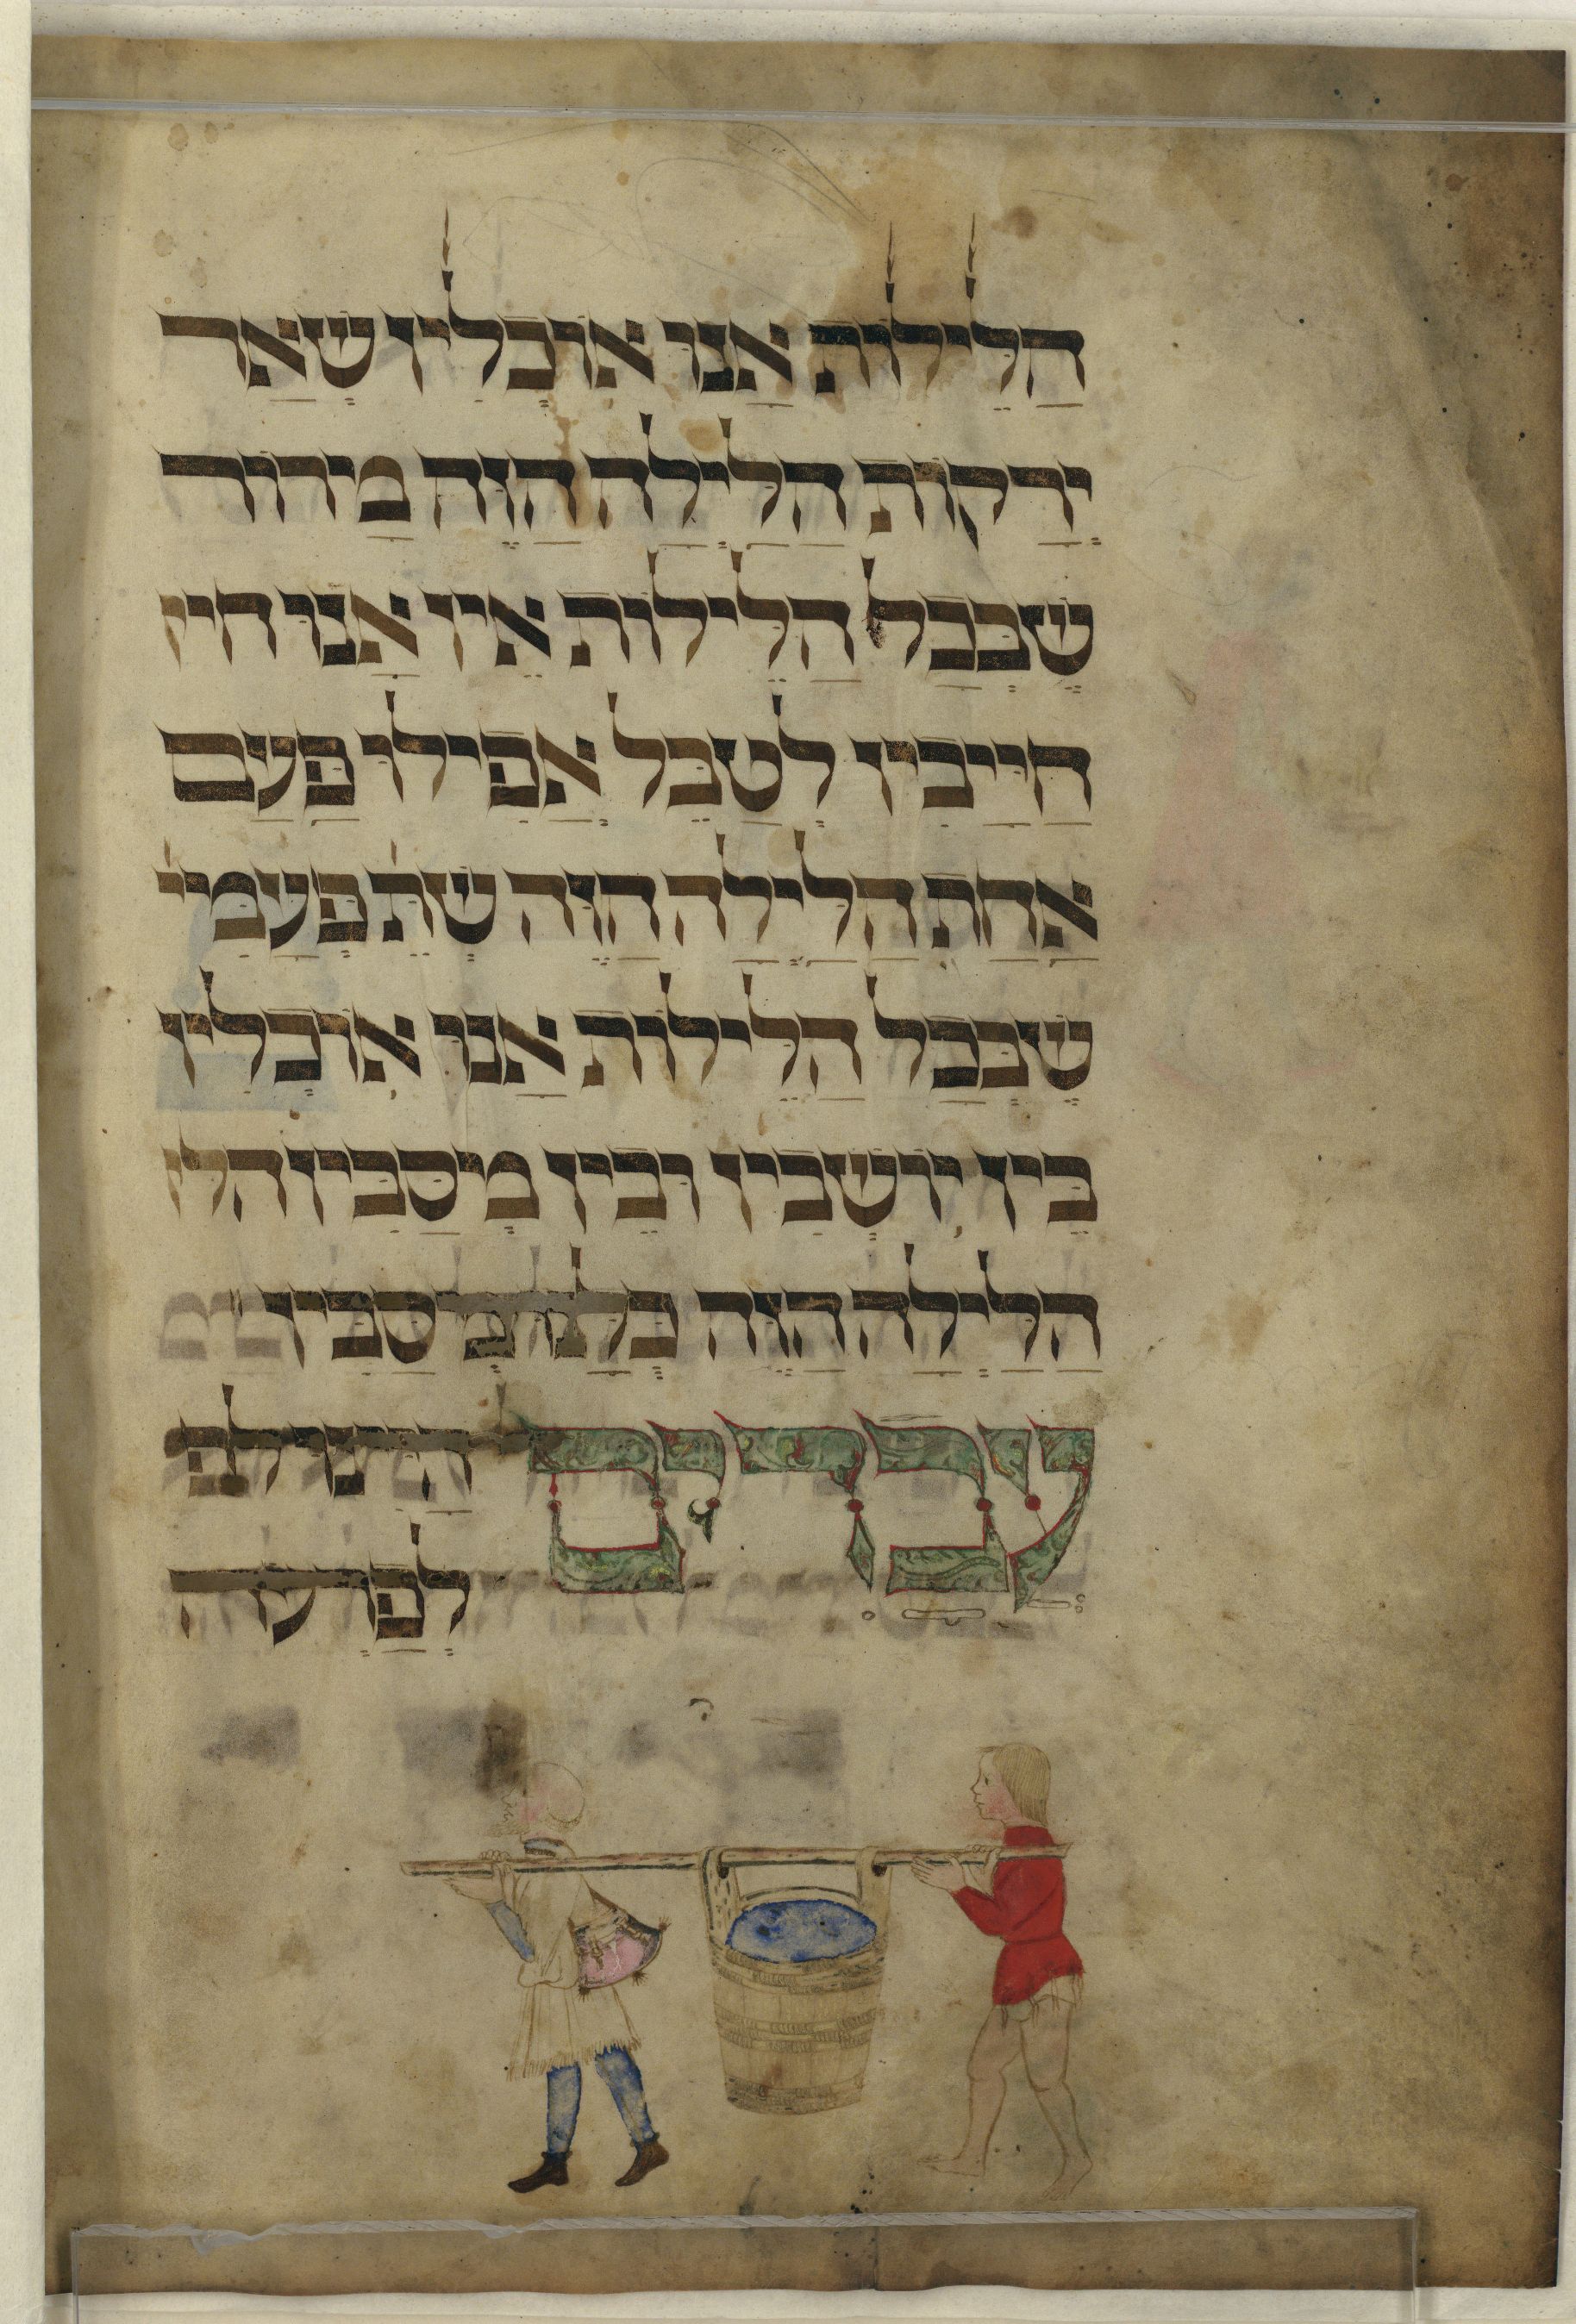 הַלֵּילוֹת אַנוּ אוֹכְלִין שְׁאָר
יְרָקוֹת הַלַּיְלָה הַזֶּה מָרוֹר
שֶׁבְּכָל הַלֵּילוֹת אֵין אָנוּ חיי
חַיָּיבִין לְטַבֵּל אֲפִילוּ פַּעַם
אַחַת הַלַּיְלָה הַזֶּה שְׁתֵּי פְּעָמִי
שֶׁבְּכָל הַלֵּילוֹת אַנוּ אוֹכְלִין
בֵּין יוֹשְׁבִין וּבֵין מְסֻבִּין הלי
הַלַּיְלָה הַזֶּה כֻּלָּנוּ מְסֻבִּין
עֲבָדִים הָיִינוּ
לְפַרְעֹה